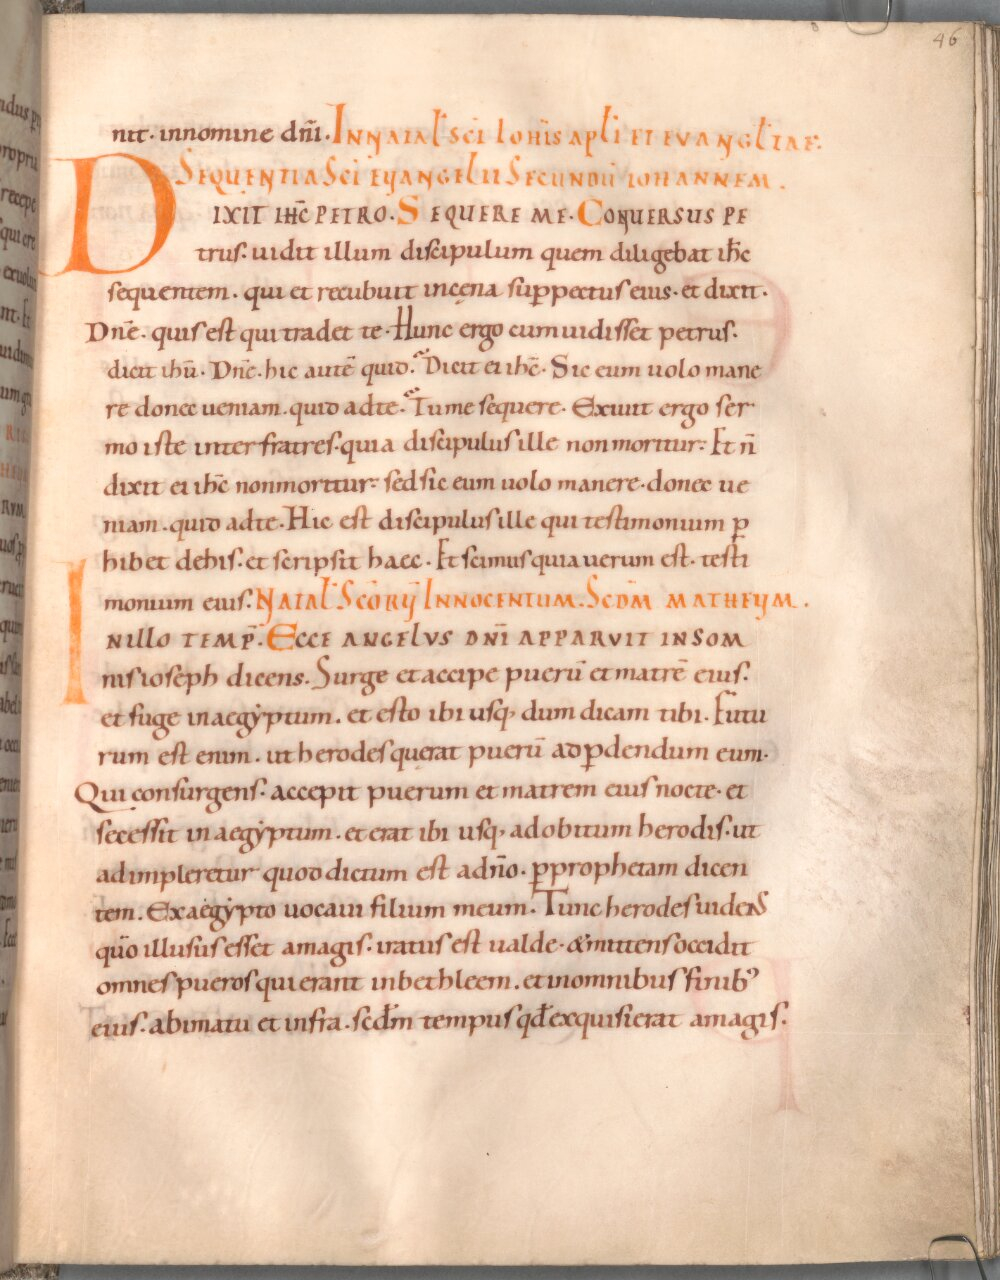 46
nit. innomine dñi. INNATAL̄ SCĪ IOHIS APL̄I ET EVANGL̄TAE.
SEQUENTIA SCĪ EVANGELII SECUNDŪ IOHANNEM.
DIXIT IHC̄ PETRO. SEQUERE ME. CONVERSUS PE
trus. uidit illum discipulum quem diligebat ihc̄
sequentem. qui et recubuit incęna suppectus eius. et dixit.
Dnē. quis est qui tradet te. Hunc ergo cum uidisset petrus.
dicit ihū. Dnē. hic autē quid. Dicit ei ihc̄. Sic eum uolo mane
re donec ueniam. quid adte. Tu me sequere. Exiuit ergo ser
mo iste inter fratres. quia discipulus ille non moritur. Et ñ
dixit ei ihc̄ nonmoritur. sed sic eum uolo manere. donec ue
niam. quid adte. Hic est discipulus ille qui testimonium ꝑ
hibet dehis. et scripsit haec. Et scimus quia uerum est. testi
monium eius. NATAL̄ SCŌRŪ INNOCENTUM. SCDM̄ MATHEUM.
INILLO TEMP̄. ECCE ANGELVS DNĪ APPARVIT INSOM
nis ioseph dicens. Surge et accipe puerū et matrē eius.
et fuge in aegẏptum. et esto ibi usq; dum dicam tibi. Futu
rum est enim. ut herodes querat puerū ad ꝑdendum eum.
Qui consurgens. accepit puerum et matrem eius nocte. et
secessit in aegẏptum. et erat ibi usq; ad obitum herodis. ut
adimpleretur quod dictum est adño. ꝑ prophetam dicen
tem. Ex aegẏpto uocaui filium meum. Tunc herodes uidens
qūo illusus esset amagis. iratus est ualde. & mittens occidit
omnes pueros qui erant in bethleem. et inomnibus finib;
eius. abimatu et infra. scdm̄ tempus qđ exquisierat amagis.